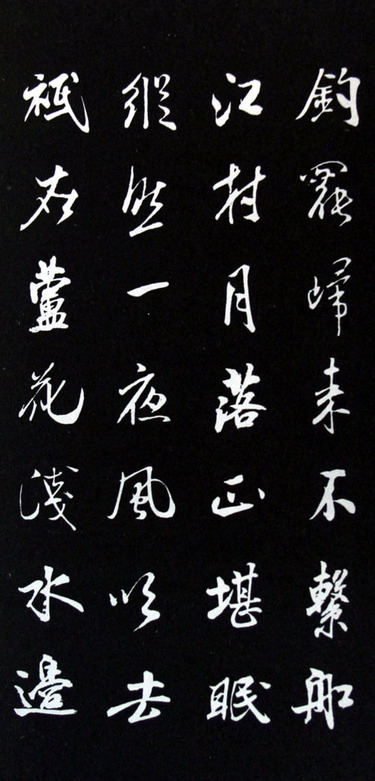 釣罷歸來不繫船
江村月落正堪眠
縱然一夜風吹去
祗在蘆花淺水邊